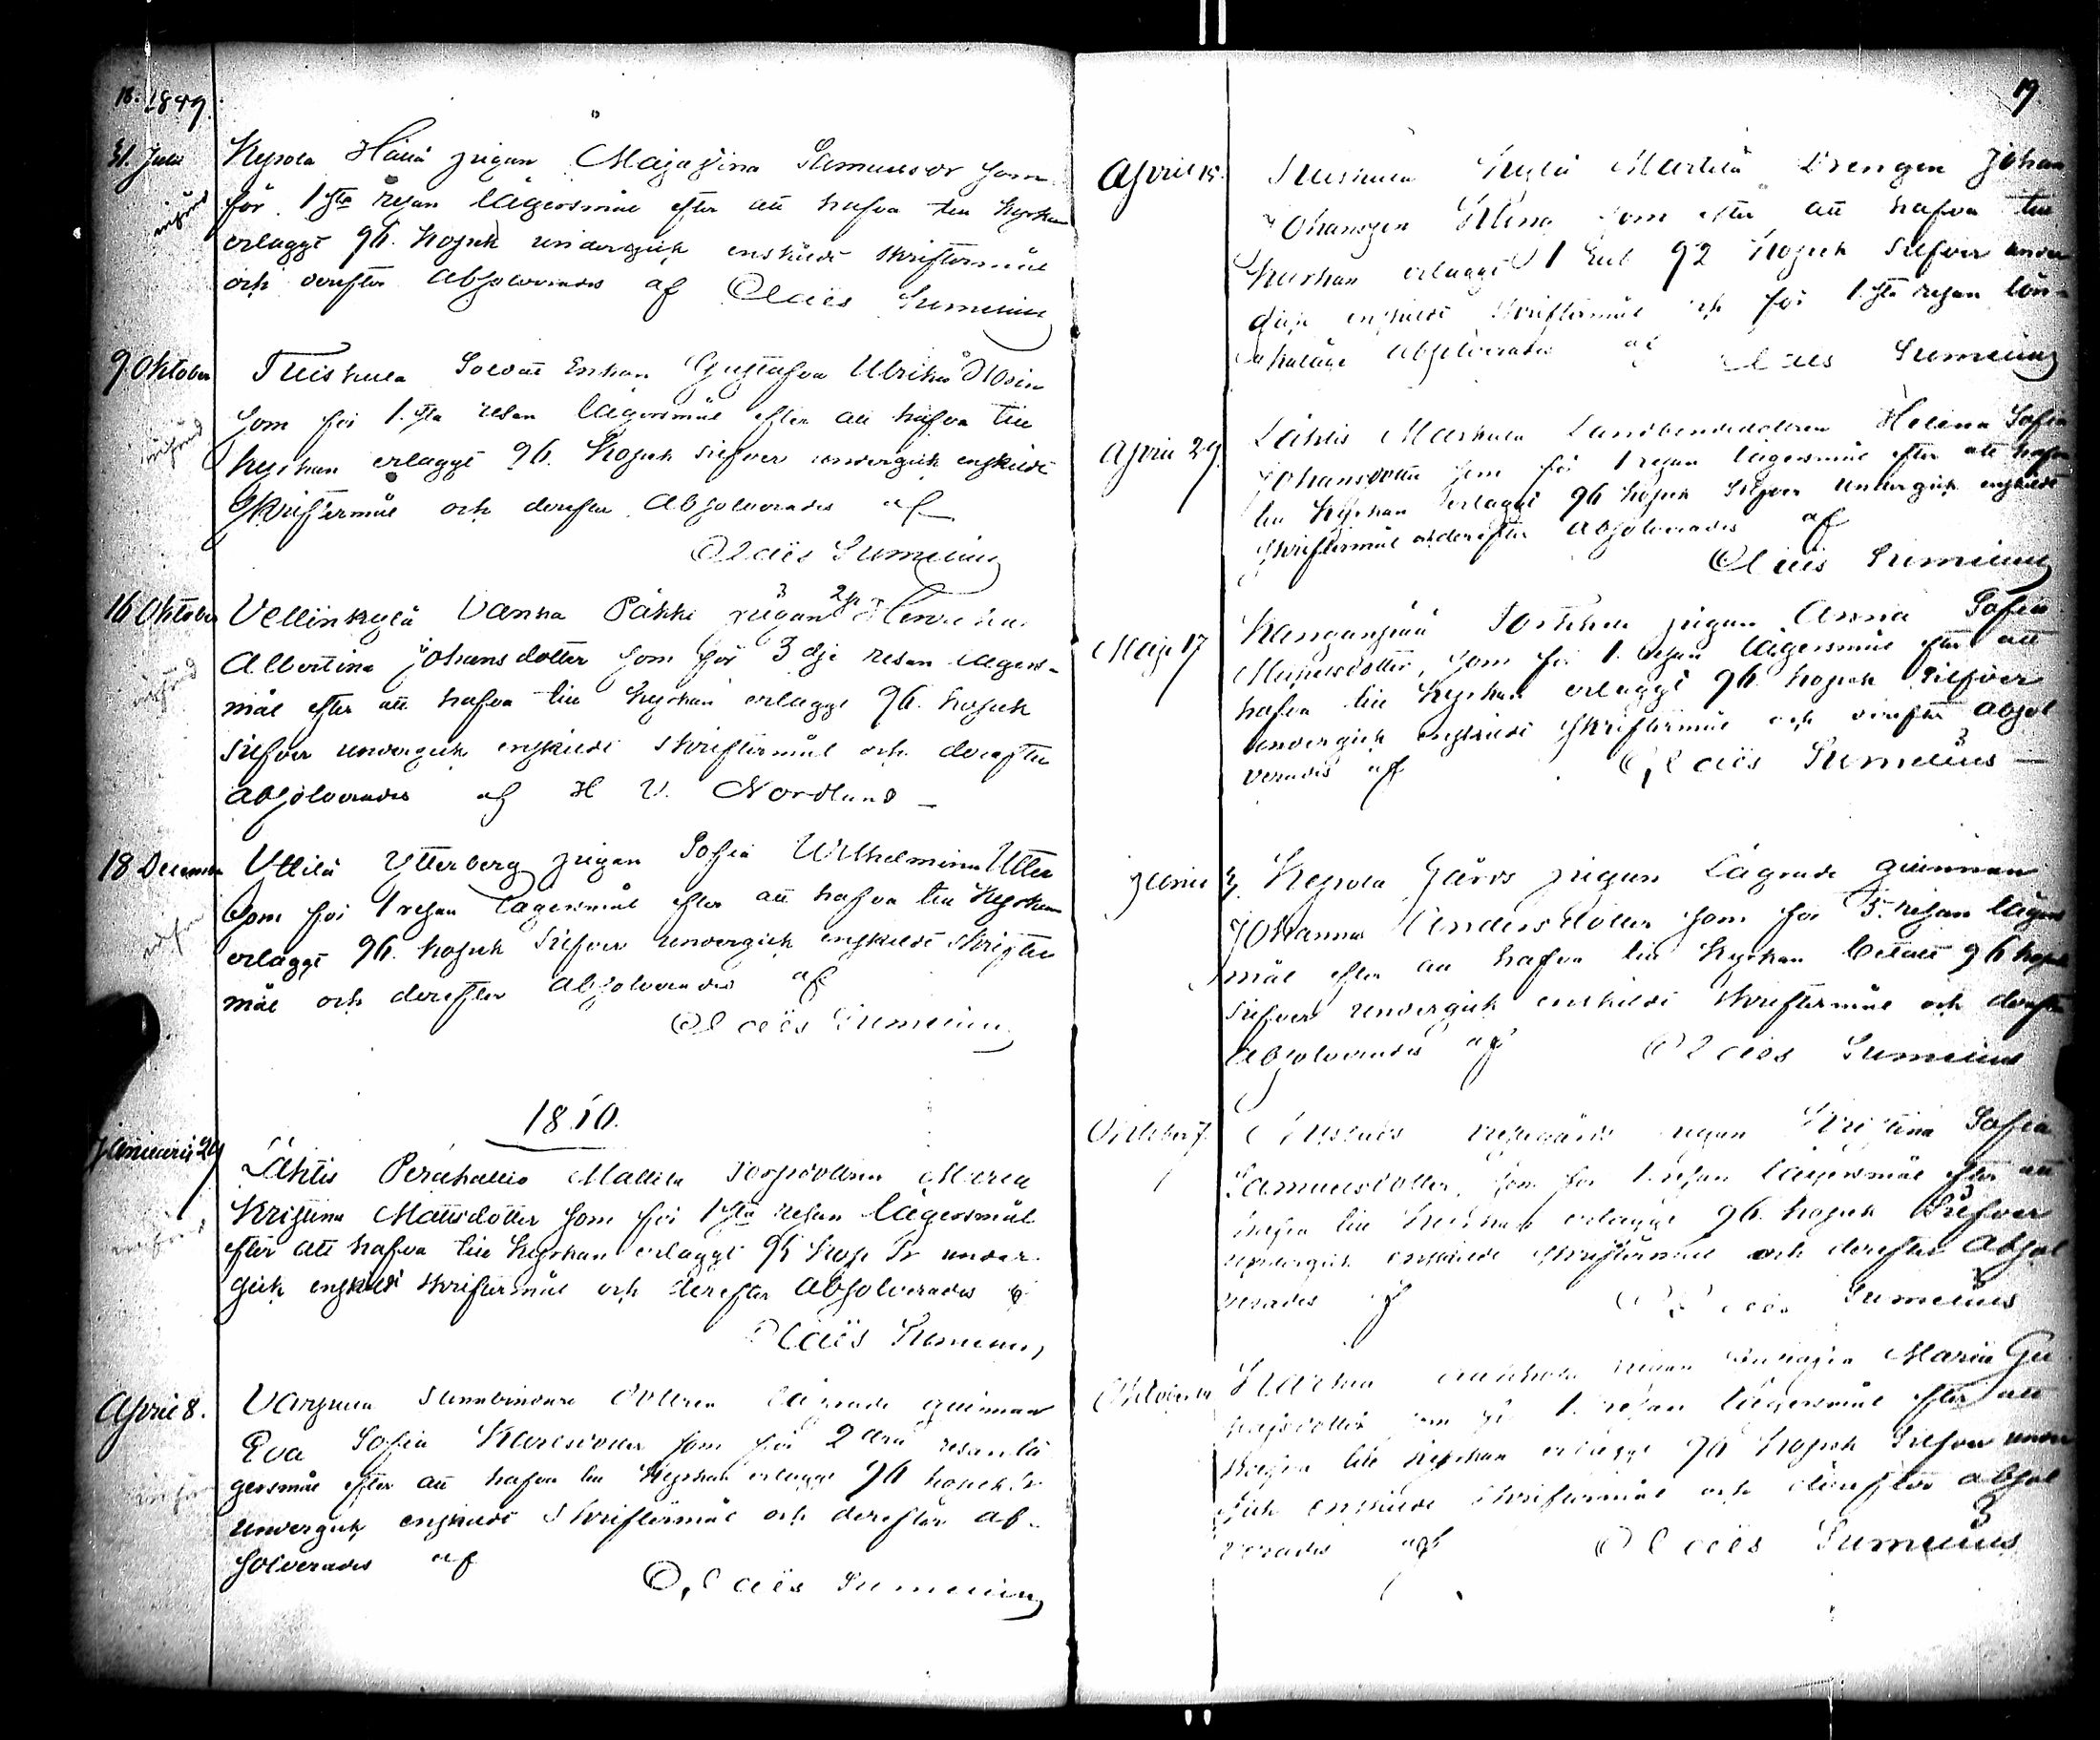 18. 1849.
31. Julii Kepola Hännä pigan Maja Stina Samuelsdr som
införd för 1sta resan lägersmål efter att hafva till kyrkan
erlaggt 96. kopek undergick enskildt skriftermål
och derefter absolverades af Claës Sumelius
9 Oktober Tuiskula Soldat Enkan Gustafva Ulrika Rosin
som för 1.sta resan lägersmål efter att hafva till
införd kyrkan erlaggt 96. kopek silfver undergick enskildt
skriftermål och derefter absolverades af
Claës Sumelius
16 Oktober Vellinkylä Vanha Päkki pigan Henrika
Albertina Johansdotter som för 3dje resan lägers-
införd mål efter att hafva till kyrkan erlaggt 96. kopek
silfver undergick enskildt skriftermål och derefter
absolverades af H V. Nordlund
18 December Uttila Ytterberg pigan Sofia Wilhelmina Utter
som för 1 resan lägersmål efter att hafva till kyrkan
erlaggt 96. kopek silfver undergick enskildt skrifter
mål och derefter absolverades af
Claës Sumelius
1850.
Januarii 29 Lähtis Peräkallio Mattila Torpdottren Maria
Kristina Mattsdotter som för 1sta resan lägersmål
införd efter att hafva till kyrkan erlaggt 96 kop Sr under
gick enskildt skriftermål och derefter absolverades af
Claës Sumelius
April 8. dottren lägrade quinnan
Eva Sofia Karlsdotter som för 2dra resan lä
gersmål efter att hafva till kyrkan erlaggt 96 kopek Sr
undergick enskildt skriftermål och derefter ab-
solverades af Claës Sumelius
19
April 15. Kylä Marttila Drengen Johan
Johansson som efter att hafva till
kyrkan erlaggt 1 Rub 92 kopek silfver under
gick enskildt skriftermål och för 1.sta resan lön-
skaläge absolverades af Claës Sumelius
April 29. Lähtis Markula Landbondedottren Helena Sofia
Johansdotter som för 1 resan lägersmål efter att hafva
till kyrkan erlaggt 96 kopek silfver undergick enskildt
skriftermål och derefter absolverades af
Claës Sumelius
Maji 17 Kanganpää pigan Anna Sofia
som för 1. resan lägersmål efter att
hafva till kyrkan erlaggt 96 kopek silfver
undergick enskildt skriftermål och derefter absol
verades af Claës Sumelius
Junii Kepola Järvs pigan lägrade quinnan
Johanna Andersdotter som för 5. resan lägers
mål efter att hafva till kyrkan betalt 96 kopek
silfver undergick enskildt skriftermål och derefter
absolverades af Claës Sumelius
Oktober 7. pigan Kristina Sofia
Samuelsdotter som för 1. resan lägersmål efter att
hafva till kyrkan erlaggt 96 kopek silfver
undergick enskildt skriftermål och derefter absol
verades af Claës Sumelius
Oktober pigan Maria
som för 1. resan lägersmål efter att
hafva till kyrkan erlaggt 96 kopek silfver under
gick enskildt skriftermål och derefter absol
verades af Claës Sumelius